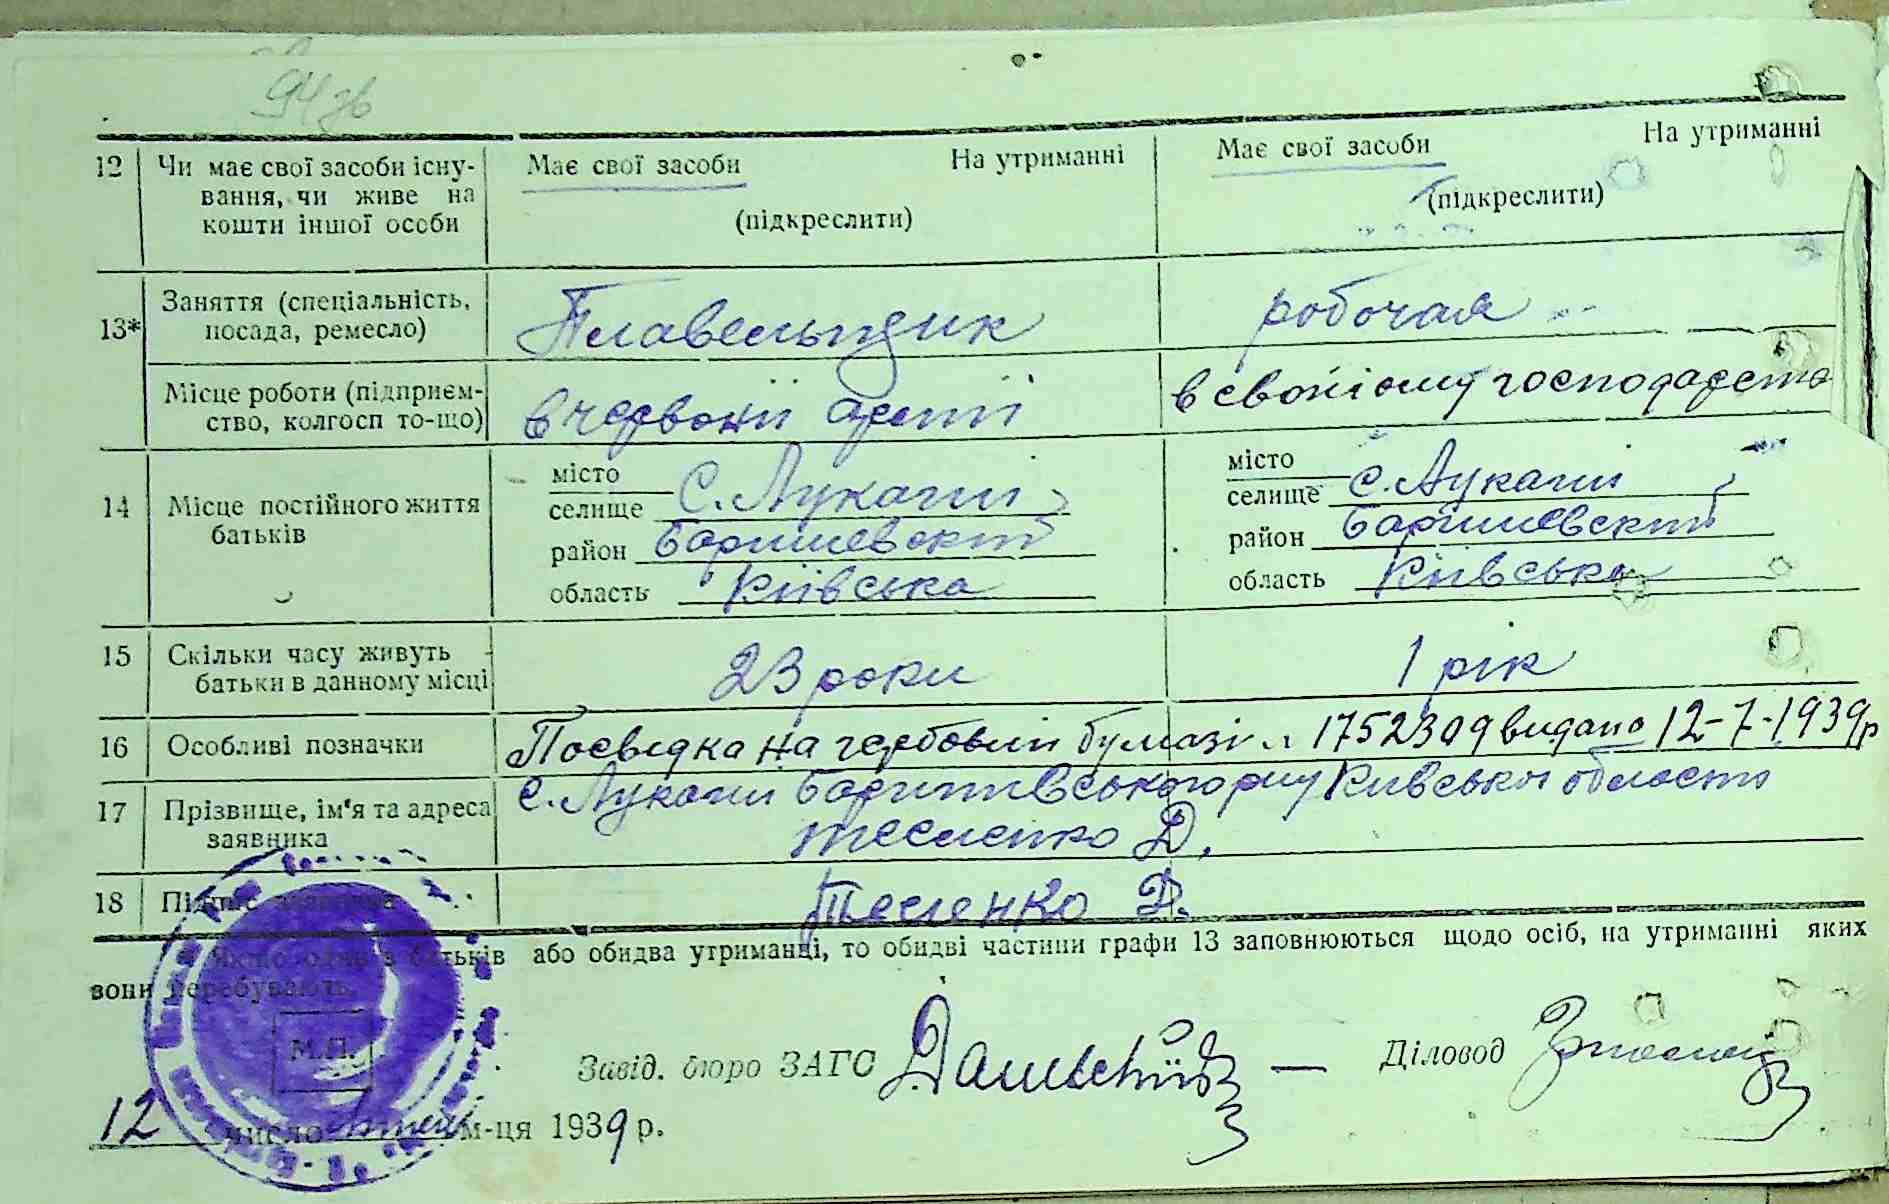 94 зв
12 Чи має свої засоби існу- Має свої засоби На утриманні Має свої засоби На утриманні
вання, чи живе на (підкреслити) (підкреслити)
кошти іншої особи
13* Заняття (спеціальність, Плавельщик робочая
посада, ремесло)
Місце роботи (підприєм- в червоній армії в своїіому господарстві
ство, колгосп то-що)
14 Місце постійного життя місто місто
батьків селище с. Лукаши селище с. Лукаши
район Баришевский район Баришевский
область Київська область Київська
15 Скільки часу живуть 23 роки 1 рік
батьки в данному місці
16 Особливі позначки Посвідка на гербовій бумазі 1752309 видана 12-7-1939р
17 Прізвище, ім'я та адреса с. Лукаши Баришівського р-ну Київської области
заявника Тесленко Д.
18 Підпис заявника Тесленко Д.
Якщо один з батьків або обидва утриманці, то обидві частини графи 13 заповнюються щодо осіб, на утриманні яких
вони перебувають.
М.П.
Завід. бюро ЗАГС Діловод
12 число м-ця 1939 р.